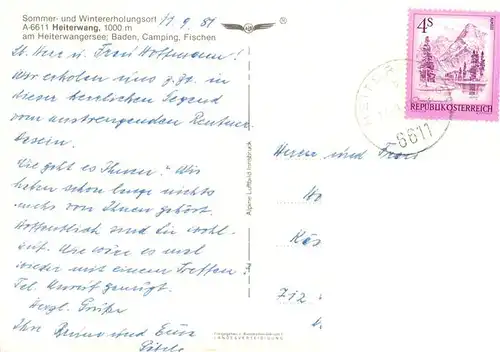 Sommer- und Wintererholungsort 11.9.81
A-6611 Heiterwang, 1000 m
am Heiterwangersee; Baden, Camping, Fischen
Lb. Herr u. Frau Hoffmann!
Wir erholen uns z.Zt. in
dieser herrlichen Gegend
vom anstrengenden Rentner
dasein.
Wie geht es Ihnen? Wir
haben schon lange nichts
mehr von Ihnen gehört.
Hoffentlich sind Sie wohl-
auf. Wie wäre es mal
wieder mit einem Treffen
Tel. Anruf genügt.
Herzl. Grüße
Ihr und Eva
Alpine Luftbild Innsbruck
4S
REPUBLIK ÖSTERREICH
6611
Herrn und Frau